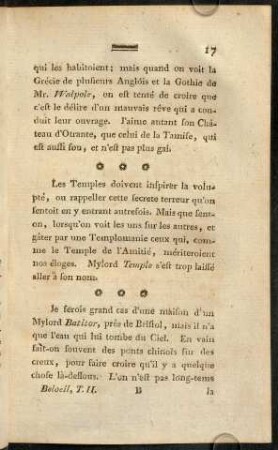 17
qui les habitoient; mais quand on voit la
Grécie de plusieurs Anglois et la Gothie de
Mr. Walpole, on est tenté de croire que
c'est le délire d'un mauvais réve qui a con-
duit leur ouvrage. J'aime autant son Châ-
teau d'Otrante, que celui de la Tamise, qui
est aussi fou, et n'est pas plus gai.
Les Temples doivent inspirer la volu-
pté, ou rappeller cette secrete terreur qu'on
sentoit en y entrant autrefois. Mais que sent-
on, lorsqu'on voit les uns sur les autres, et
gâter par une Templomanie ceux qui, com-
me le Temple de l'Amitié, mériteroient
nos éloges. Mylord Temple s'est trop laissé
aller à son nom.
Je ferois grand cas d'une maison d'un
Mylord Batitor, près de Bristol, mais il n'a
que l'eau qui lui tombe du Ciel. En vain
fait-on souvent des ponts chinois sur des
creux, pour faire croire qu'il y a quelque
chose là-dessous. L'on n'est pas long-tems
Beloeil, T. II. B la